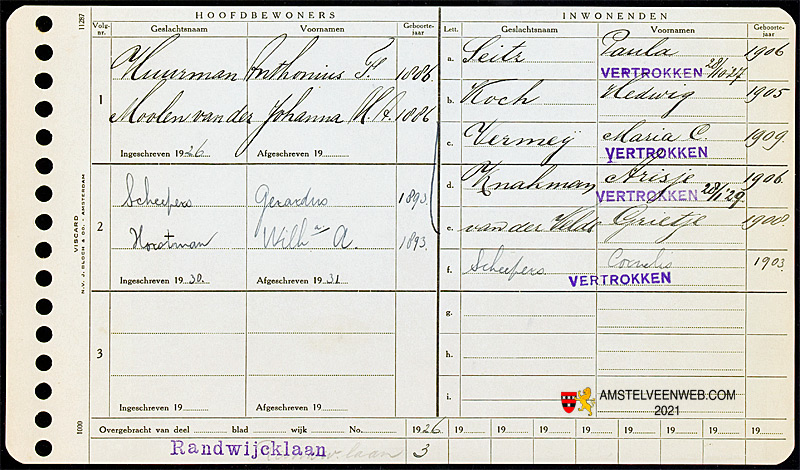 HOOFDBEWONERS
INWONENDEN
11287
Volg-nr.
Geslachtsnaam
Voornamen
Geboorte-jaar
Lett.
Geslachtsnaam
Voornamen
Geboorte-jaar
1
Huurman Anthonius F. 1886
Moolen van der Johanna M. A. 1886
Ingeschreven 1926
Afgeschreven 19
2
Scheepers Gerardus 1893
Horstman Wilhª A. 1893
Ingeschreven 1930
Afgeschreven 1931
3
Ingeschreven 19
Afgeschreven 19
a. Seitz Paula 1906
VERTROKKEN 28/10 '27
b. Koch Hedwig 1905
c. Vermeÿ Maria C. 1909
VERTROKKEN
d. Knahman Arisje 1906
VERTROKKEN 28/1 '29
e. van der Velde Grietje 1908
f. Scheepers Cornelis 1903
VERTROKKEN
g.
h.
i.
VISCARD
N.V. J. BLOCH & CO. - AMSTERDAM
1000
Overgebracht van deel blad wijk No. 1926 19 19 19 19 19 19 19 19
Randwijcklaan laan 3
AMSTELVEENWEB.COM
2021